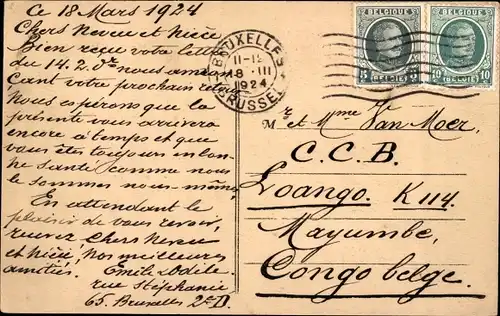 Ce 18 Mars 1924
Chers Neveu et Nièce
Bien reçu votre lettre
du 14.2. nous
çant votre prochain retour
Nous espérons que la
présente vous arrivera
encore à temps et que
vous êtes toujours en bon-
ne santé comme nous
le sommes nous-mêmes
En attendant le
plaisir de vous revoir,
recevez Chers Neveu
et Nièce, nos meilleures
amitiés. Emile Odile
rue Stéphanie
65. Bruxelles 2e D.
BRUXELLES
11-12
18 III
1924
BRUSSEL
BELGIQUE
5 5
BELGIË
BELGIQUE
10 10
BELGIË
Mr et Mme Van Moer
C.C.B.
Loango. K114.
Mayumbe.
Congo belge.